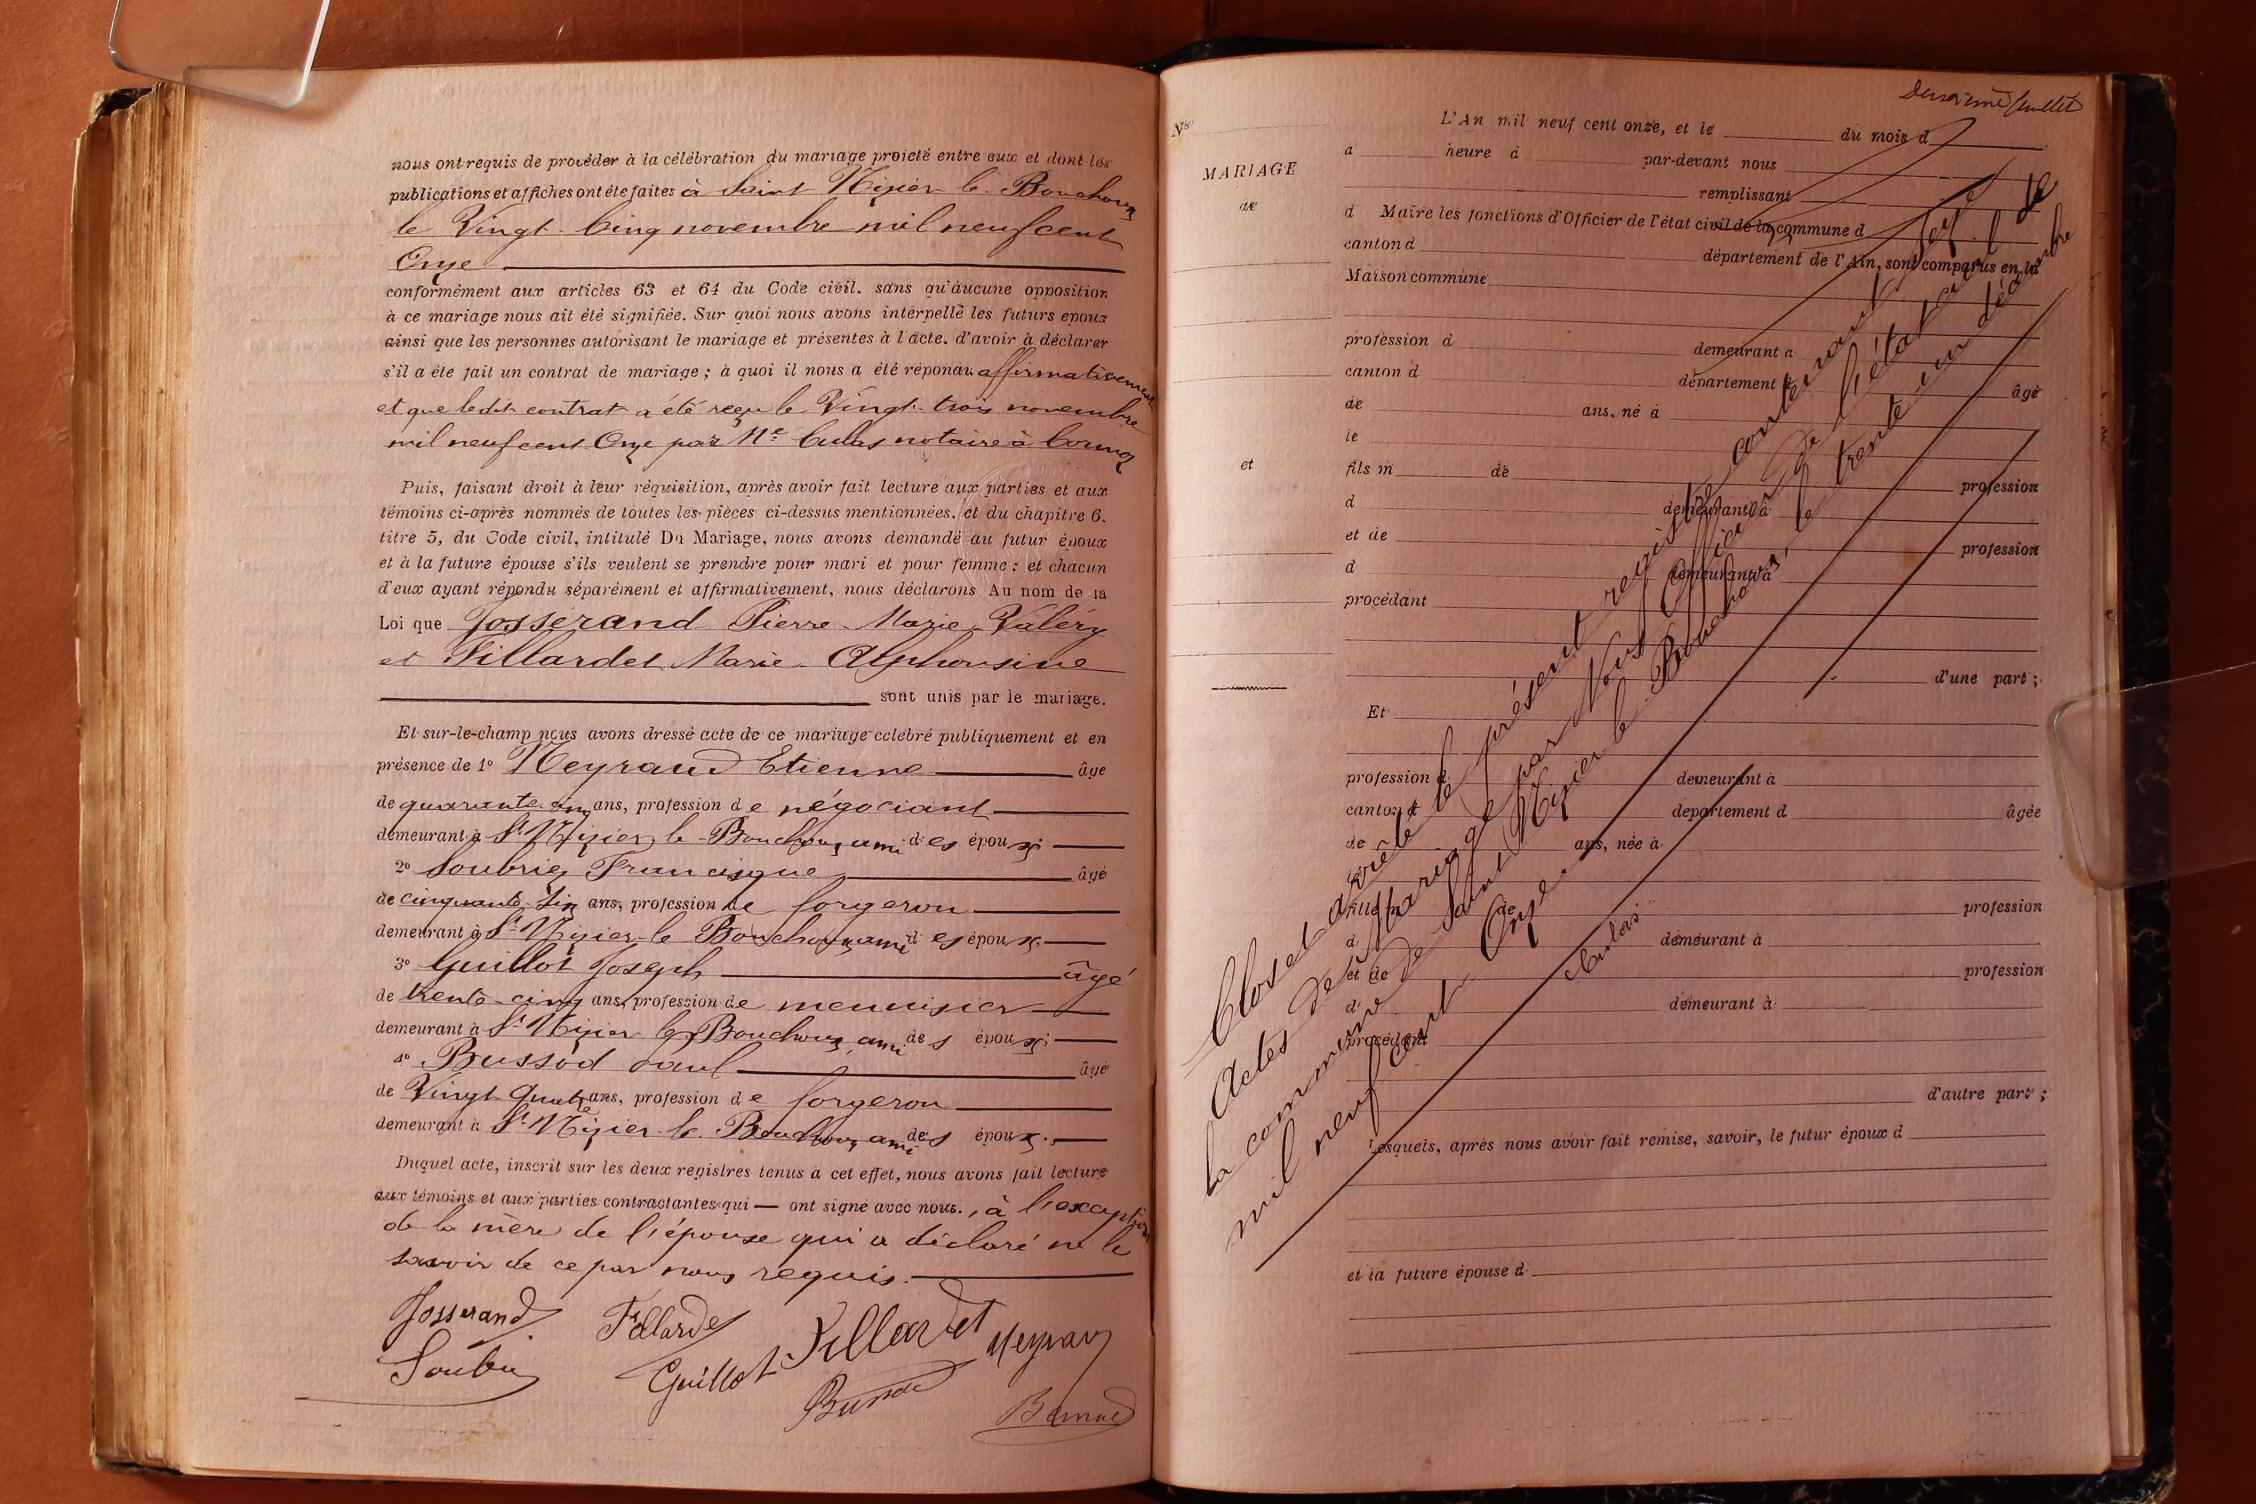 nous ont requis de procéder à la célébration du mariage projeté entre eux et dont les
publications et affiches ont été faites à Saint Nizier le Bouchoux
le Vingt-Cinq novembre mil neuf cent
Onze
conformément aux articles 63 et 64 du Code civil. sans qu'aucune opposition
à ce mariage nous ait été signifiée. Sur quoi nous avons interpellé les futurs epoux
ainsi que les personnes autorisant le mariage et présentes à l'acte. d'avoir à déclarer
s'il a été fait un contrat de mariage ; à quoi il nous a été répondu affirmativement
et que ledit contrat a été reçu le Vingt-trois novembre
mil neuf cent Onze par Me Culas notaire à Cormoz
Puis, faisant droit à leur réquisition, après avoir fait lecture aux parties et aux
témoins ci-après nommés de toutes les pièces ci-dessus mentionnées. et du chapitre 6.
titre 5, du Code civil, intitulé Du Mariage, nous avons demandé au futur époux
et à la future épouse s'ils veulent se prendre pour mari et pour femme : et chacun
d'eux ayant répondu séparément et affirmativement, nous déclarons Au nom de la
Loi que Josserand Pierre-Marie-Valéry
et Fillardet Marie-Alphonsine
sont unis par le mariage.
Et sur-le-champ nous avons dressé acte de ce mariage célébré publiquement et en
présence de 1° Meyraud Etienne âgé
de quarante ans, profession de négociant
demeurant à St Nizier le Bouchoux ami des époux ;
2° Francisque âgé
de cinquante-six ans, profession de forgeron
demeurant à St Nizier-le Bouchoux ami des époux ;
3° Guillot Joseph âgé
de trente-cinq ans, profession de menuisier
demeurant à St Nizier le Bouchoux, ami des époux ;
4° Bussod Paul âgé
de Vingt-quatre ans, profession de forgeron
demeurant à St Nizier-le Bouchoux, ami des époux.
Duquel acte, inscrit sur les deux registres tenus à cet effet, nous avons fait lecture
aux témoins et aux parties contractantes qui — ont signé avec nous., à l'exception
de la mère de l'épouse qui a déclaré ne le
savoir de ce par nous requis.
Josserand Fillardet Fillardet Meyraud
Guillot
Bernard
Deuxième feuillet
N°
MARIAGE
de
et
L'An mil neuf cent onze, et le du mois d
a heure à par-devant nous
remplissant
d Maire les fonctions d'Officier de l'état civil de la commune d
canton d département de l'Ain, sont comparus en la
Maison commune
profession d demeurant a
canton d département d âgé
de ans, né à
le
fils m de profession
d demeurant à
et de profession
d demeurant à
procédant
d'une part ;
Et
profession d demeurant à
canton d departement d âgée
de ans, née à
le
fille m de profession
d demeurant à
et de profession
d demeurant à
procédant
d'autre part ;
Lesquels, après nous avoir fait remise, savoir, le futur époux d
et la future épouse d
Clos et arrêté le présent registre contenant sept
Actes de Mariage par Nous Officier de l'état civil de
la commune de Saint Nizier le Bouchoux, le trente un décembre
mil neuf cent Onze